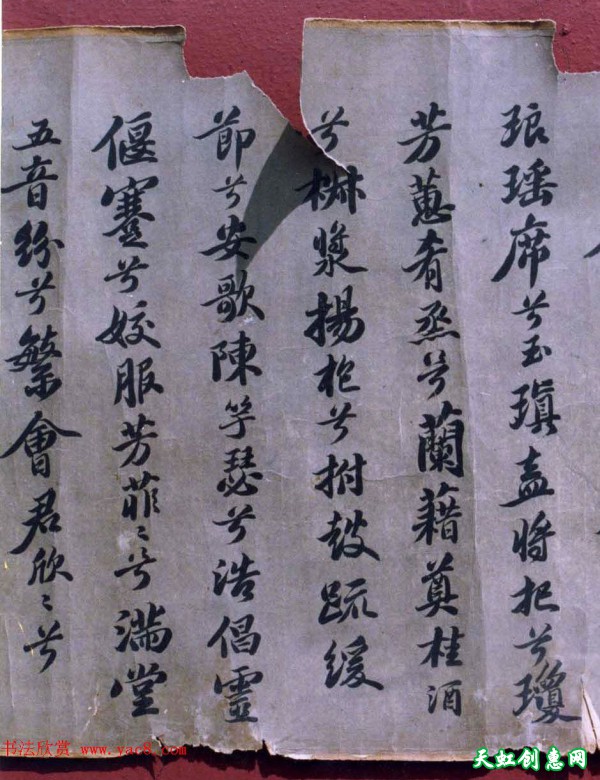 琅瑶席兮玉瑱盍將把兮瓊
芳蕙肴烝兮蘭藉奠桂酒
兮椒漿揚枹兮拊鼓疏緩
節兮安歌陳竽瑟兮浩倡靈
偃蹇兮姣服芳菲〻兮滿堂
五音紛兮繁會君欣〻兮
书法欣赏 www.yac8.com
天虹创惠网